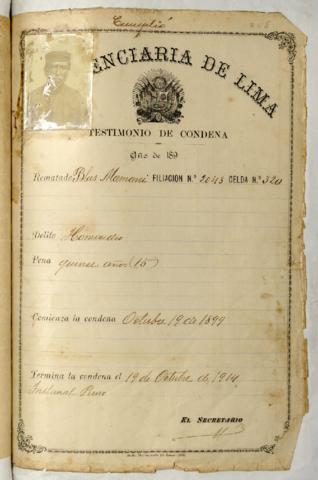 Cumplió
ENCIARIA DE LIMA
TESTIMONIO DE CONDENA
Año de 189
Rematado Blas Mamani FILIACION N.º 2043 CELDA N.º 320
Delito Homicidio
Pena quince años (15)
Comienza la condena Octubre 19 de 1899
Termina la condena el 19 de Octubre de 1914
Tribunal Puno
EL SECRETARIO